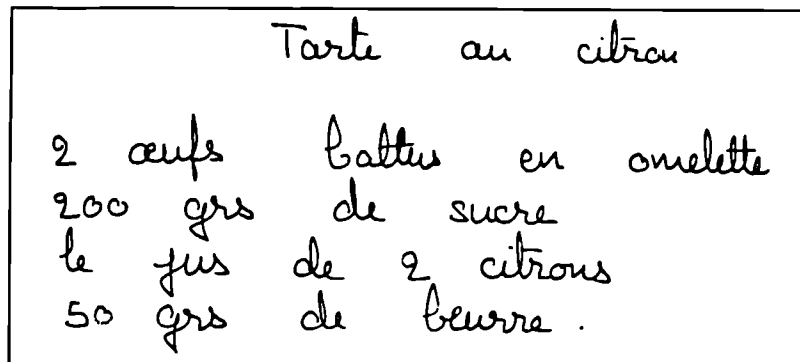 Tarte au citron
2 œufs battus en omelette
200 grs de sucre
le jus de 2 citrons
50 grs de beurre.